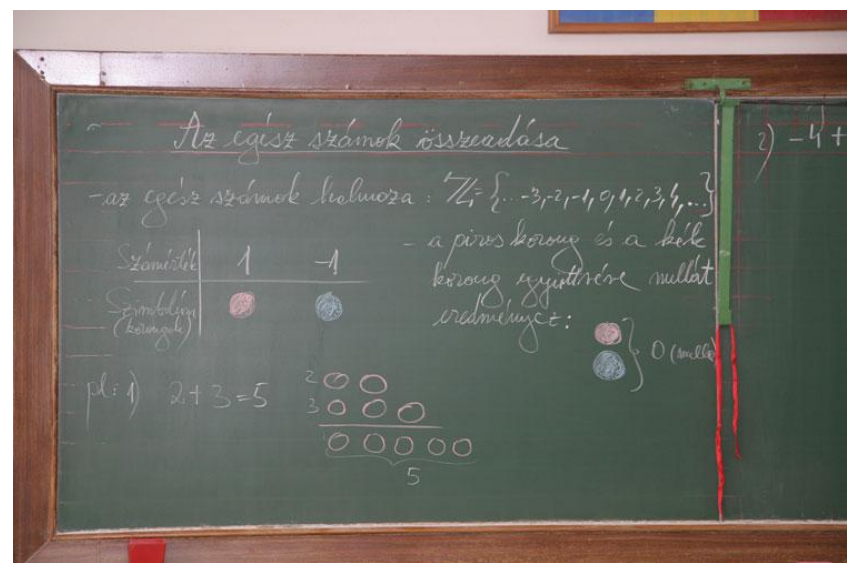 Az egész számok összeadása
- az egész számok halmaza : ℤ = {... -3, -2, -1, 0, 1, 2, 3, 4, ...}
Számérték 1 -1
Szimbólum
(korongok)
- a piros korong és a kék
korong együttvéve nullát
eredményez :
0 (nulla)
pl: 1) 2 + 3 = 5
2
3
5
2) -4 +